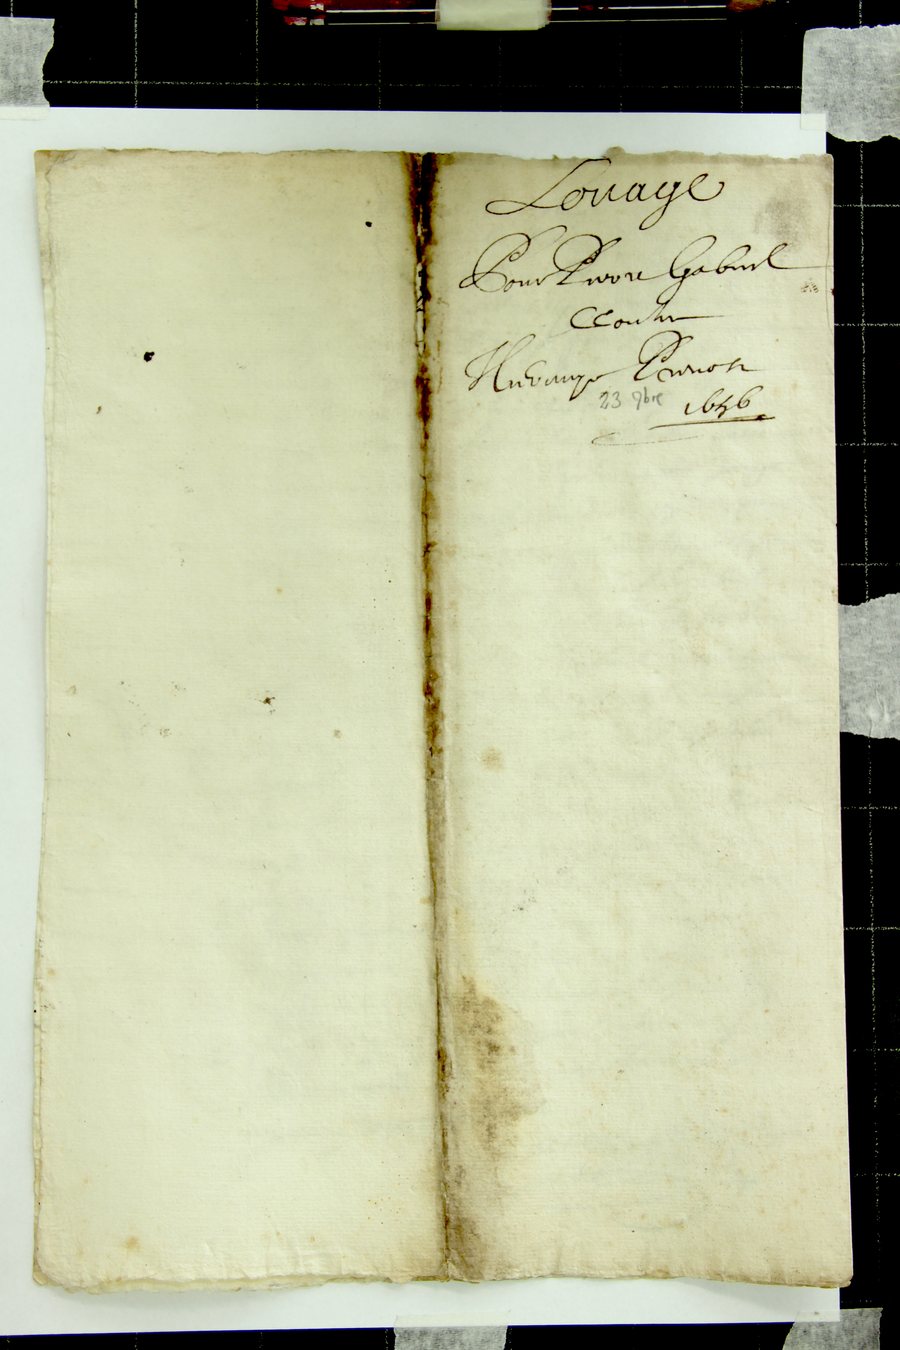 Louage
Pour Pierre Gabriel
Contre
Pierrot
23 9bre 1656